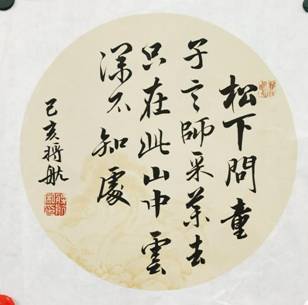 松下問童
子言師采药去
只在此山中雲
深不知處
己亥將航